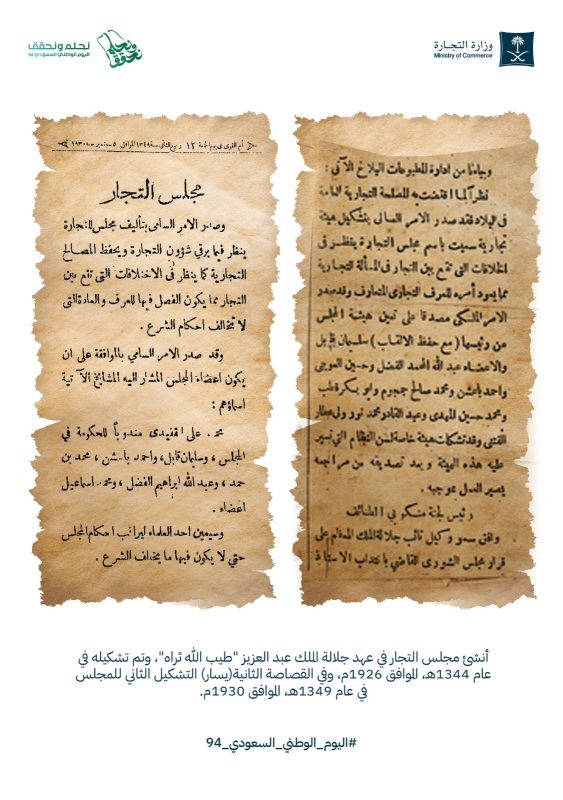 وزارة التجارة
Ministry of Commerce
نحلم ونحقق
اليوم الوطني السعودي 94
نحلم ونحقق
وجاءنا من ادارة المطبوعات البلاغ الآتي :
نظراً لما اقتضت به المصلحة التجارية العامة
في البلاد فقد صدر الامر العالي بتشكيل هيئة
تجارية سميت باسم مجلس التجارة ينظر في
الخلافات التي تقع بين التجار في المسألة التجارية
مما يعود أمره للعرف التجاري المتعارف وقد صدر
الامر الملكي مصدقا على تعين هيئة المجلس
من رئيسها ( مع حفظ الالقاب ) سليمان قابل
والاعضاء عبد الله محمد الفضل وحسين العويني
واحد باعشن ومحمد صالح جمجوم وابو بكر قطب
ومحمد حسين المهدي وعبد القادر محمد نور وعلى عطار
الفتنى وقد تشكلت هيئة خاصة لسن النظام التي تسير
عليه هذه الهيئة و بعد تصديقه من مراجعه
يصير العمل بموجبه .
رئيس لجنة منكوبي الطائف
وافق سمو وكيل نائب جلالة الملك المعظم على
قرار مجلس الشورى القاضي بانتداب الاستاذ
أم القرى في يوم الجمعة ١٢ ربيع الثاني سنة ١٣٤٩ الموافق ٥ سبتمبر سنة ١٩٣٠
مجلس التجار
وصدر الامر السامى بتأليف مجلس للتجارة
ينظر فيما يرقي شؤون التجارة ويحفظ المصالح
التجارية كما ينظر في الاختلافات التى تقع بين
التجار مما يكون الفصل فيها للعرف والعادة التى
لا تخالف احكام الشرع .
وقد صدر الامر السامي بالموافقة على ان
يكون اعضاء المجلس المشار اليه المشايخ الآتية
اسماؤهم :
على القفيدى مندوباً للحكومة في
المجلس ، وسليمان قابل ، واحمد باعشن ، محمد بن
حمد ، وعبد الله ابراهيم الفضل ، ومحمد اسماعيل
اعضاء .
وسيعين احد العلماء ليراقب احكام المجلس
حتي لا يكون فيها ما يخالف الشرع .
أنشئ مجلس التجار في عهد جلالة الملك عبد العزيز "طيب الله ثراه"، وتم تشكيله في
عام 1344هـ، الموافق 1926م، وفي القصاصة الثانية(يسار) التشكيل الثاني للمجلس
في عام 1349هـ، الموافق 1930م.
#اليوم_الوطني_السعودي_94